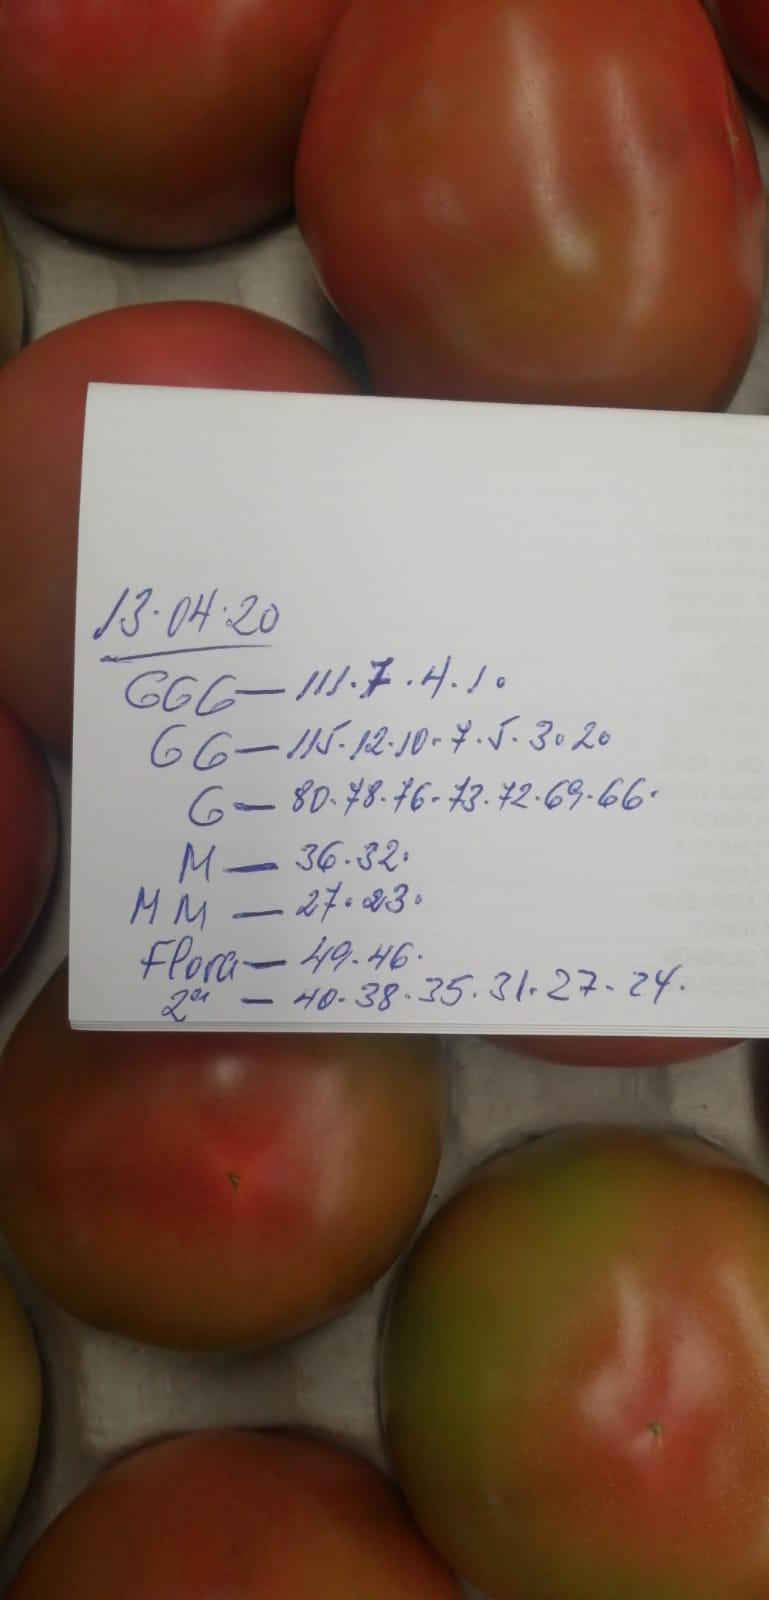 13.04.20
GGG — 111.7.4.1.
GG — 115.12.10.7.5.3.2.
G — 80.78.76.73.72.69.66.
M — 36.32.
MM — 27.23.
Flora — 49.46.
2ª — 40.38.35.31.27.24.